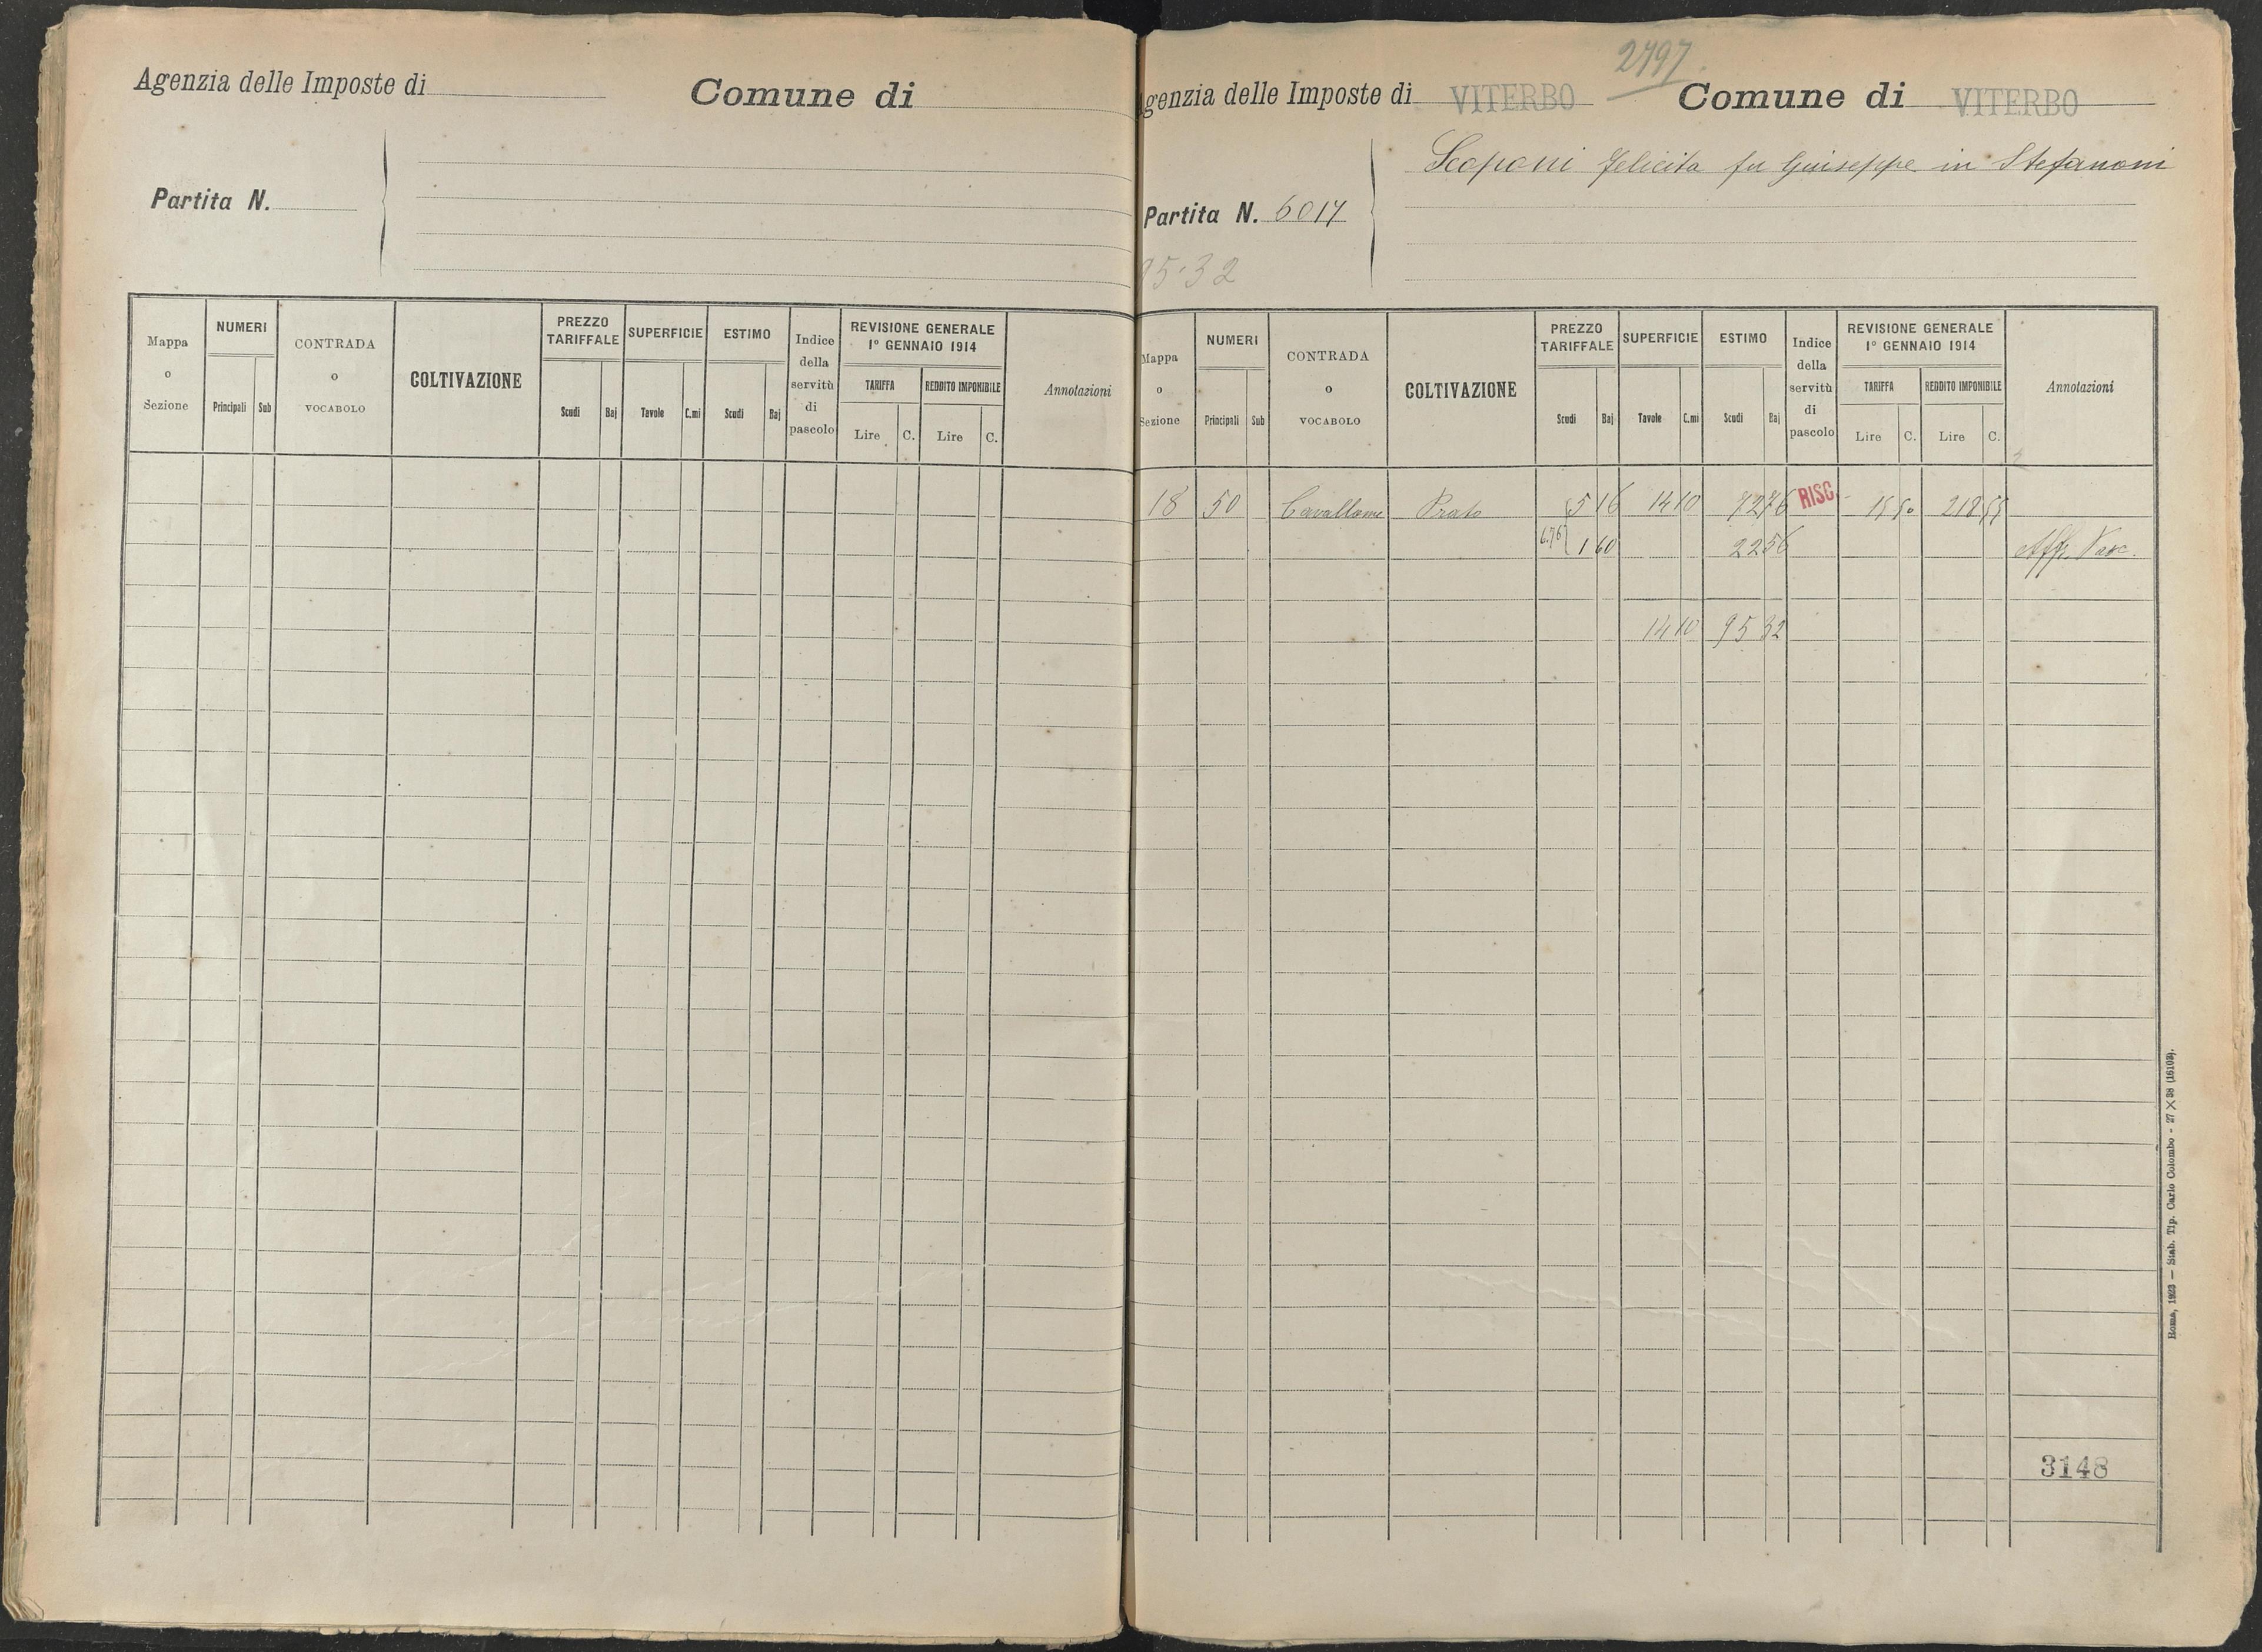 Agenzia delle Imposte di
Comune di
Partita N.
Mappa o Sezione
NUMERI
Principali Sub
CONTRADA o VOCABOLO
COLTIVAZIONE
PREZZO TARIFFALE
Scudi Baj
SUPERFICIE
Tavole C.mi
ESTIMO
Scudi Baj
Indice della servitù di pascolo
REVISIONE GENERALE
1º GENNAIO 1914
TARIFFA
Lire C.
REDDITO IMPONIBILE
Lire C.
Annotazioni
2797
genzia delle Imposte di VITERBO
Comune di VITERBO
Scoponi Felicita fu Giuseppe in Stefanoni
Partita N. 6017
95.32
Mappa o Sezione
NUMERI
Principali Sub
CONTRADA o VOCABOLO
COLTIVAZIONE
PREZZO TARIFFALE
Scudi Baj
SUPERFICIE
Tavole C.mi
ESTIMO
Scudi Baj
Indice della servitù di pascolo
REVISIONE GENERALE
1º GENNAIO 1914
TARIFFA
Lire C.
REDDITO IMPONIBILE
Lire C.
Annotazioni
18 50 Cavallone Prato 5 16 14 10 72 76 RISC 15 50 218 55
6.76 1 60 22 56 Affr. Pasc.
14 10 95 32
3148
Roma, 1923 — Stab. Tip. Carlo Colombo - 27 X 38 (16103).